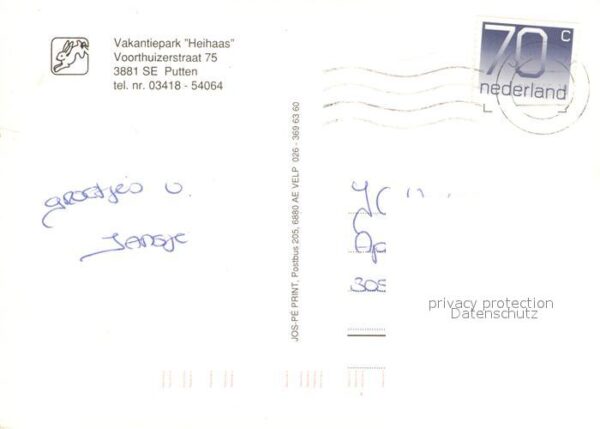 Vakantiepark "Heihaas"
Voorthuizerstraat 75
3881 SE Putten
tel. nr. 03418 - 54064
70 c
nederland
groetjes v.
Jansje
JOS-PÉ PRINT, Postbus 205, 6880 AE VELP 026 - 369 63 60
Ap
privacy protection
Datenschutz